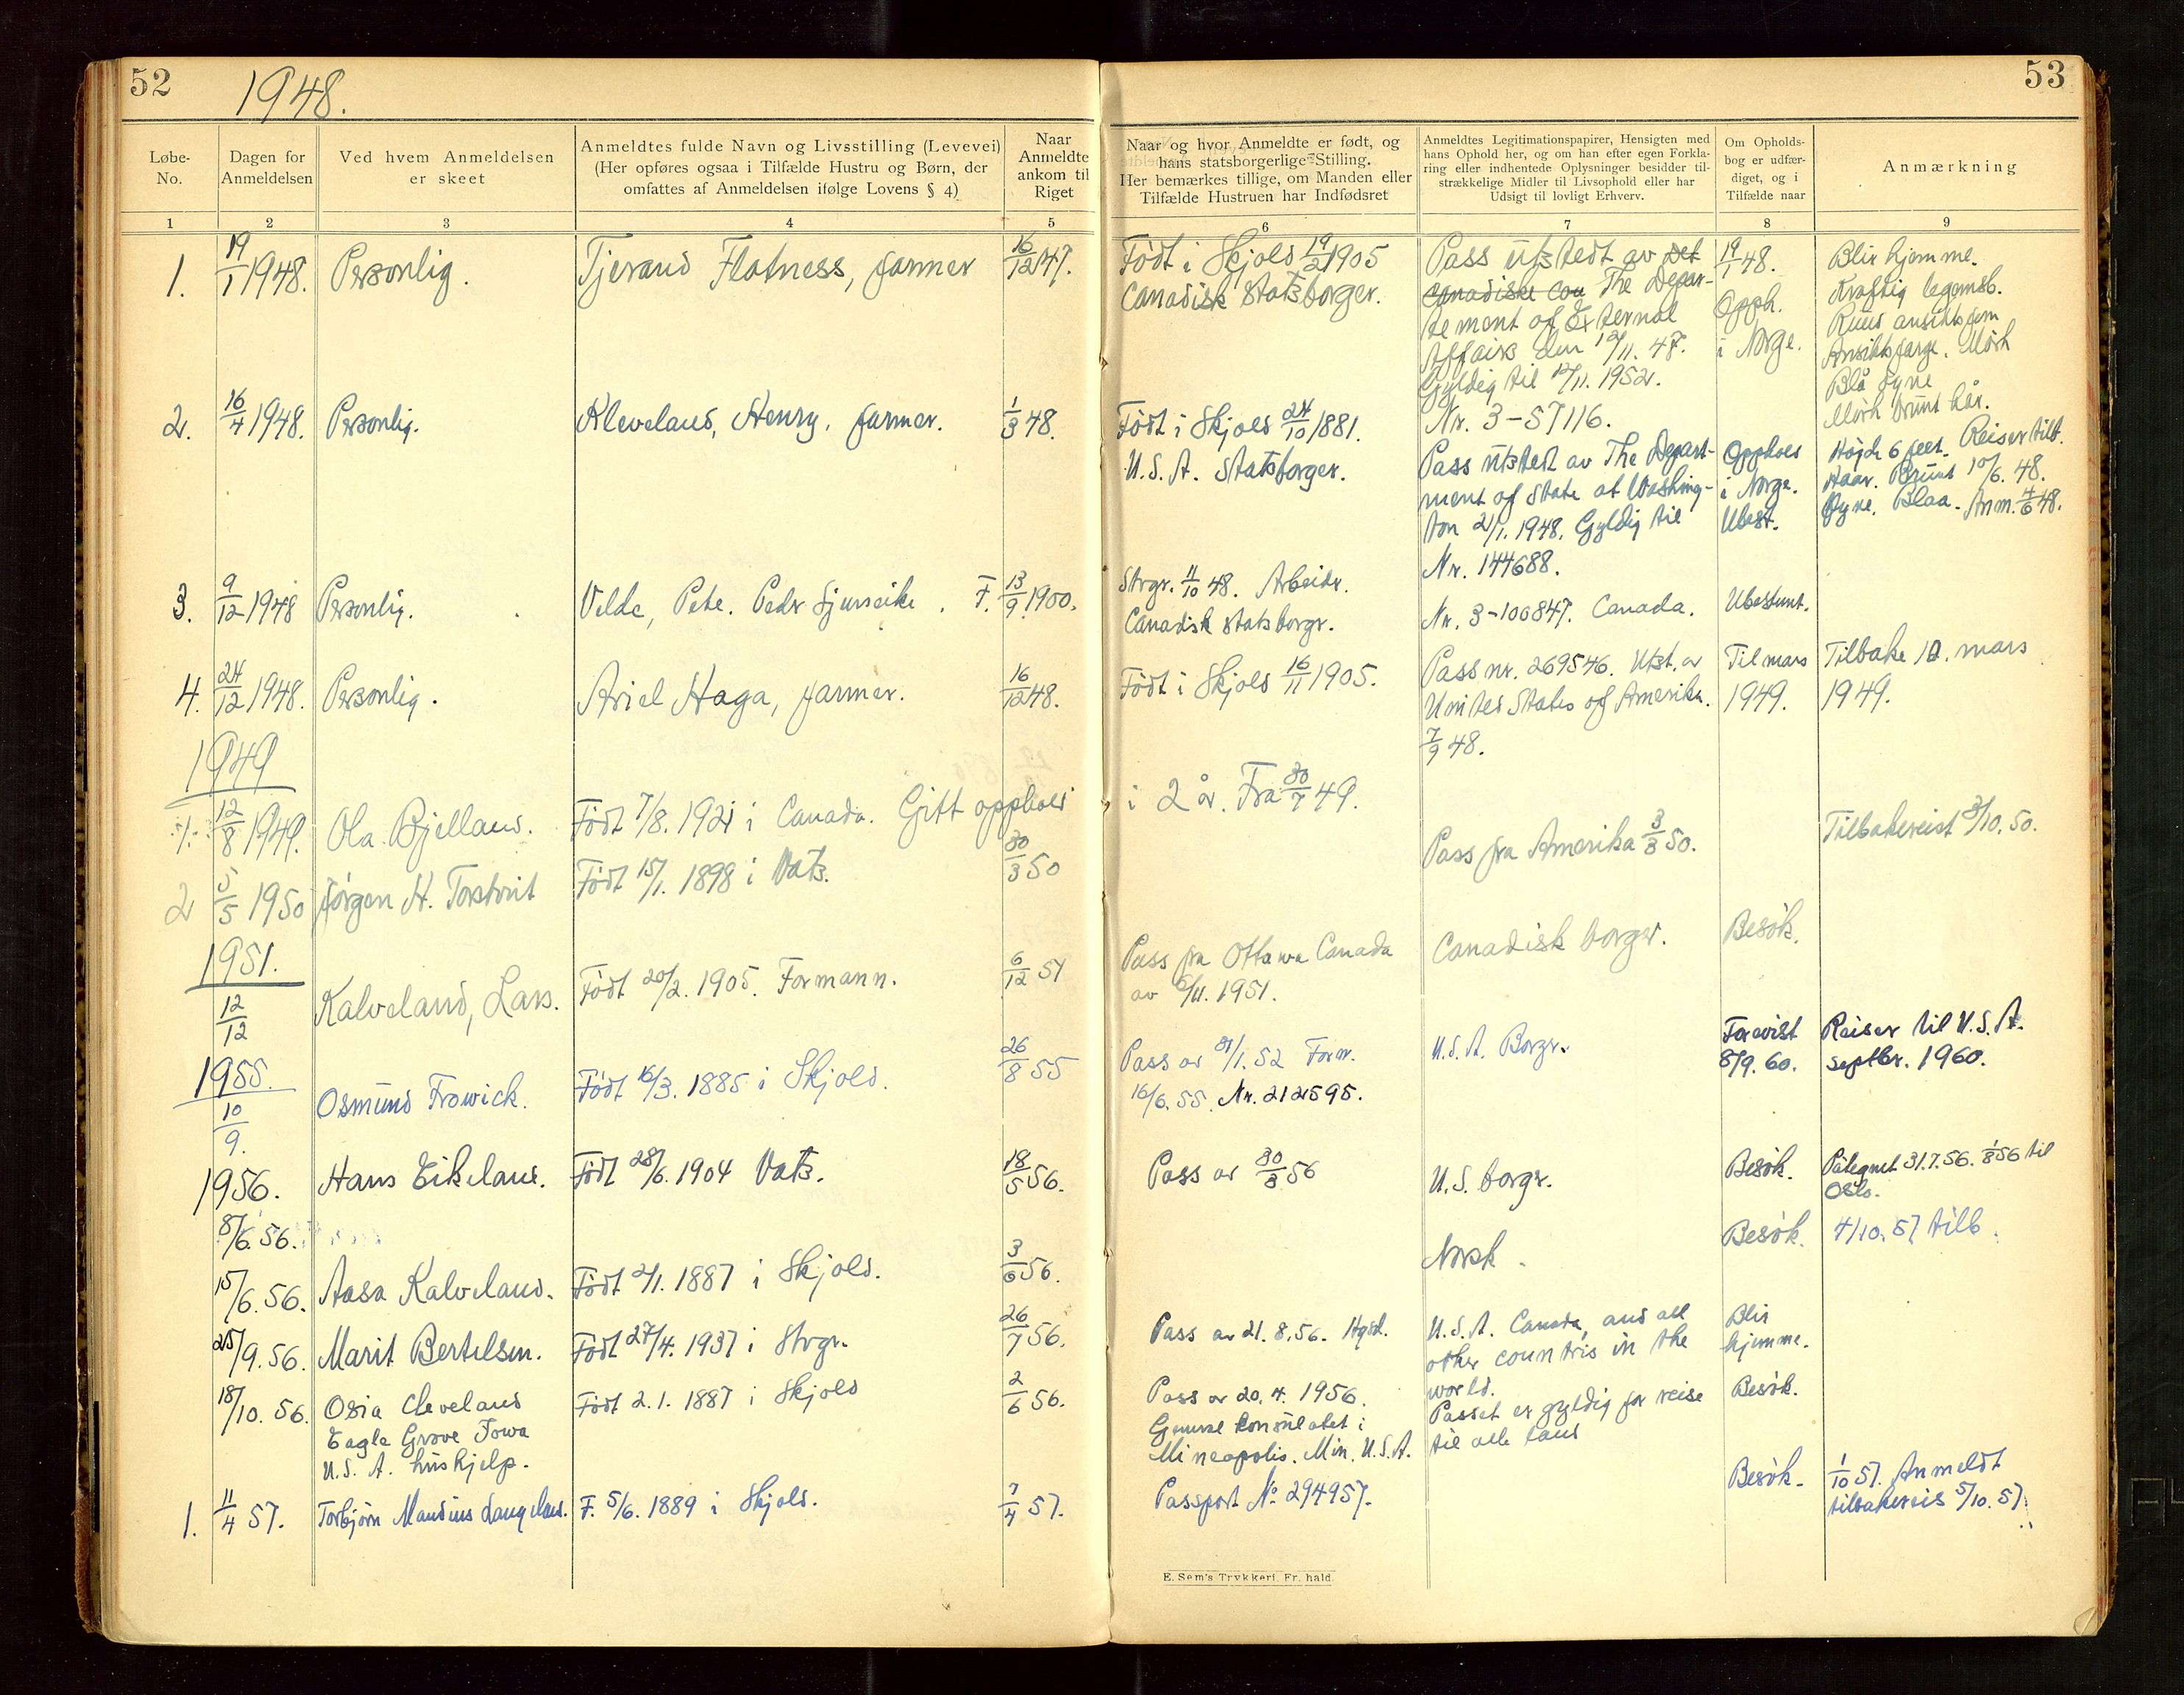 52
1948.
Løbe-
No.
Dagen for
Anmeldelsen
Ved hvem Anmeldelsen
er skeet
Anmeldtes fulde Navn og Livsstilling (Levevei)
(Her opføres ogsaa i Tilfælde Hustru og Børn, der
omfattes af Anmeldelsen ifølge Lovens § 4)
Naar
Anmeldte
ankom til
Riget
1 2 3 4 5
1. 19/1 1948. Personlig. Tjerand Flatness, farmer 16/12 47.
2. 16/4 1948. Personlig. Kleveland, Henry, farmer. 1/3 48.
3. 9/12 1948 Personlig. Velde, Pete. Peder Sjurseike. F. 13/9 1900.
4. 24/12 1948. Personlig. Ariel Haga, farmer. 16/12 48.
1949
1. 12/8 1949. Ola Bjelland. Født 7/8. 1921 i Canada. Gitt opphold
2 5/5 1950 Jørgen H. Torstveit Født 15/1. 1898 i Vats. 30/3 50
1951.
12/12 Kalveland, Lars. Født 20/2. 1905. Formann. 6/12 51
1955.
10/9. Osmund Frowick. Født 16/3. 1885 i Skjold. 26/8 55
1956. Hans Eikeland. Født 28/6. 1904 Vats. 18/5 56.
8/6. 56.
15/6. 56. Aasa Kalveland. Født 2/1. 1887 i Skjold. 3/6 56.
25/9. 56. Marit Bertelsen. Født 27/4. 1937 i Stvgr. 26/7 56.
18/10. 56. Osia Cleveland Født 2.1. 1887 i Skjold 2/6 56.
Eagle Grove Iowa
U.S.A. hushjelp.
1. 11/4 57. Torbjørn Mandius Langeland. F. 5/6. 1889 i Skjold. 7/4 57.
53
Naar og hvor Anmeldte er født, og
hans statsborgerlige Stilling.
Her bemærkes tillige, om Manden eller
Tilfælde Hustruen har Indfødsret
Anmeldtes Legitimationspapirer, Hensigten med
hans Ophold her, og om han efter egen Forkla-
ring eller indhentede Oplysninger besidder til-
strækkelige Midler til Livsophold eller har
Udsigt til lovligt Erhverv.
Om Opholds-
bog er udfær-
diget, og i
Tilfælde naar
Anmærkning
6 7 8 9
Født i Skjold 19/2 1905
Canadisk statsborger.
Pass utstedt av det
canadiske Cou The Depar-
tement of External
Affairs den 12/11. 47.
Gyldig til 12/11. 1952.
Nr. 3-57116.
19/1 48.
Opph.
i Norge.
Blir hjemme.
Kraftig legemsb.
Rund ansiktsform
Ansiktsfarge. Mørk
Blå øyne
Mørk brunt hår.
Født i Skjold 24/10 1881.
U.S.A. statsborger.
Pass utstedt av The Depart-
ment of State at Washing-
ton 21/1. 1948. Gyldig til
Nr. 144688.
Opphold
i Norge.
Ubest.
Højde 6 feet. Reiser tilb.
Haar. Brunt 10/6. 48.
Øyne. Blaa. Anm. 4/6 48.
Stvgr. 11/10 48. Arbeider.
Canadisk statsborger.
Nr. 3-100847. Canada.
Ubestemt.
Født i Skjold 16/11 1905.
Pass nr. 269546. Utst. av
United States of Amerika.
7/9 48.
Til mars
1949.
Tilbake 12. mars
1949.
i 2 år. Fra 30/7 49.
Pass fra Amerika 3/3 50.
Tilbakereist 3/10. 50.
Pass fra Ottawa Canada
av 6/11. 1951.
Canadisk borger.
Besøk.
Pass av 31/1. 52 Forn.
16/6. 55. Nr. 212595.
U.S.A. Borger.
Forevist
8/9. 60.
Reiser til U.S.A.
septbr. 1960.
Pass av 30/3 56
U.S. borger.
Besøk.
Påtegnet 31.7.56. 1/8 56 til
Oslo.
Norsk.
Besøk.
4/10. 57 tilb.
Pass av 21. 8. 56. Hgsd.
U.S.A. Canada, and all
other countris in the
world.
Blir
hjemme.
Pass av 20. 4. 1956.
General konsulatet i
Mineapolis. Min. U.S.A.
Passet er gyldig for reise
til alle land
Besøk.
Passport No. 294957.
Besøk.
1/10 57. Anmeldt
tilbakereis 5/10. 57.
E. Sem's Trykkeri, Fr. hald.